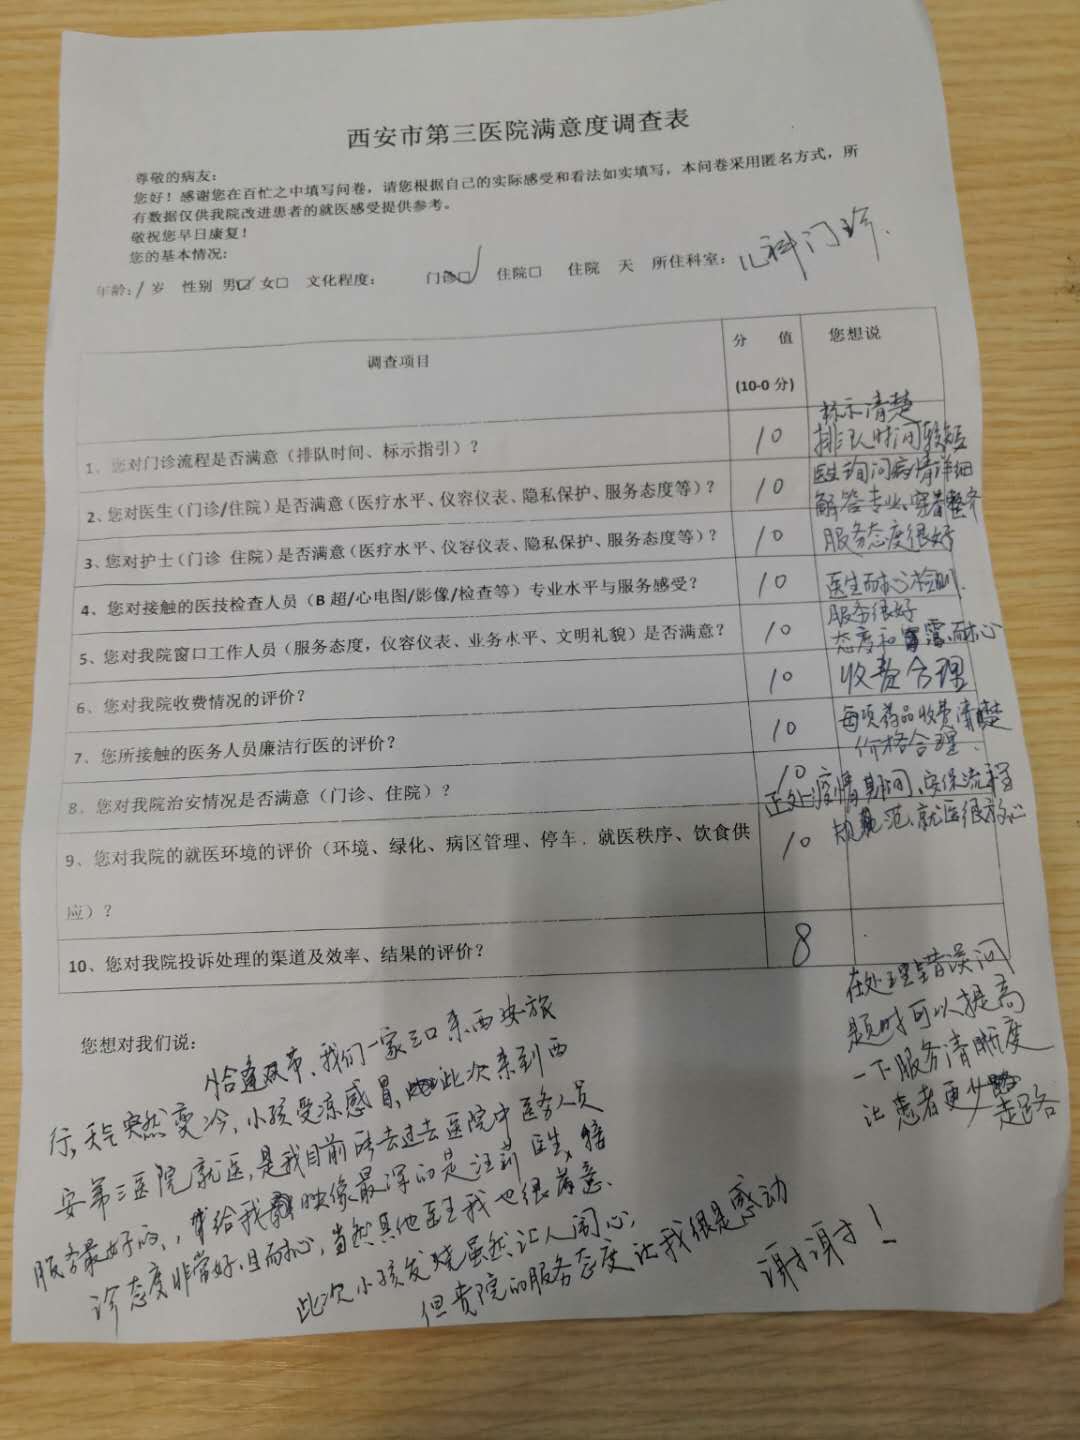 西安市第三医院满意度调查表
尊敬的病友：
您好！感谢您在百忙之中填写问卷，请您根据自己的实际感受和看法如实填写，本问卷采用匿名方式，所
有数据仅供我院改进患者的就医感受提供参考。
敬祝您早日康复！
您的基本情况：
年龄：1岁 性别 男☑ 女□ 文化程度： 门诊☑ 住院□ 住院 天 所住科室：儿科门诊.
调查项目 分 值 您想说
(10-0 分)
标示清楚
1、您对门诊流程是否满意（排队时间、标示指引）？ 10 排队时间较短
医生询问病情详细
2、您对医生（门诊/住院）是否满意（医疗水平、仪容仪表、隐私保护、服务态度等）？ 10 解答专业、穿着整齐
3、您对护士（门诊 住院）是否满意（医疗水平、仪容仪表、隐私保护、服务态度等）？ 10 服务态度很好
4、您对接触的医技检查人员（B 超/心电图/影像/检查等）专业水平与服务感受？ 10 医生耐心检测.
服务很好
5、您对我院窗口工作人员（服务态度，仪容仪表、业务水平、文明礼貌）是否满意？ 10 态度和蔼、耐心
6、您对我院收费情况的评价？ 10 收费合理
7、您所接触的医务人员廉洁行医的评价？ 10 每项药品收费清楚
价格合理.
8、您对我院治安情况是否满意（门诊、住院）？ 10
正处疫情期间、安保流程
规范、就医很放心
9、您对我院的就医环境的评价（环境、绿化、病区管理、停车．就医秩序、饮食供 10
应）？
10、您对我院投诉处理的渠道及效率、结果的评价？ 8
在处理错误问
题时可以提高
一下服务清晰度
让患者更少走路
您想对我们说：
恰逢双节、我们一家三口来西安旅
行，天气突然变冷、小孩受凉感冒，此次来到西
安第三医院就医，是我目前所去过去医院中医务人员
服务最好的，给我映像最深的是汪莉医生，接
诊态度非常好、且耐心，当然其他医生我也很满意.
此次小孩发烧虽然让人闹心，
但贵院的服务态度让我很是感动
谢谢！